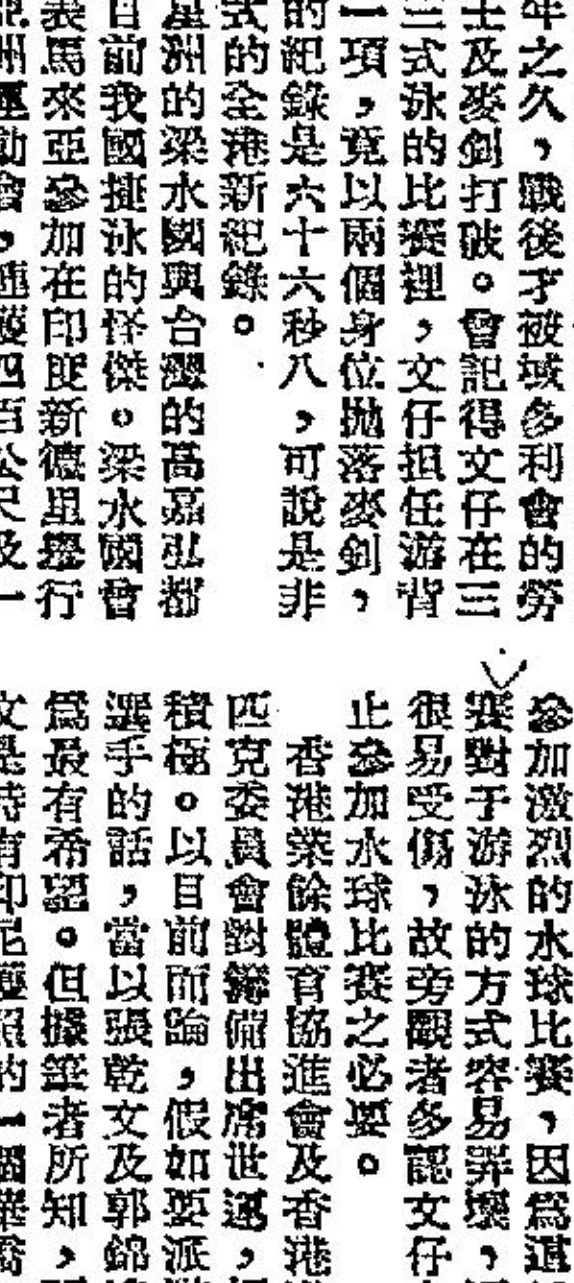 年之久，戰後才被域多利會的勞
士及麥劍打破。曾記得文仔在三
三式泳的比賽裡，文仔担任游背
一項，竟以兩個身位拋落麥劍，
的紀錄是六十六秒八，可說是非
式的全港新紀錄。
星洲的梁水國與台灣的高嘉弘都
目前我國捷泳的怪傑。梁水國曾
表馬來亞參加在印度新德里舉行
洲運動會，連獲四百公尺及一
參加激烈的水球比賽，因爲這
賽對于游泳的方式容易弄壞，
很易受傷，故旁觀者多認文仔
止參加水球比賽之必要。
香港業餘體育協進會及香港
匹克委員會對籌備出席世運，
積極。以目前而論，假如要派
選手的話，當以張乾文及郭錦
爲最有希望。但據筆者所知，
文是持有印尼護照的一個華僑